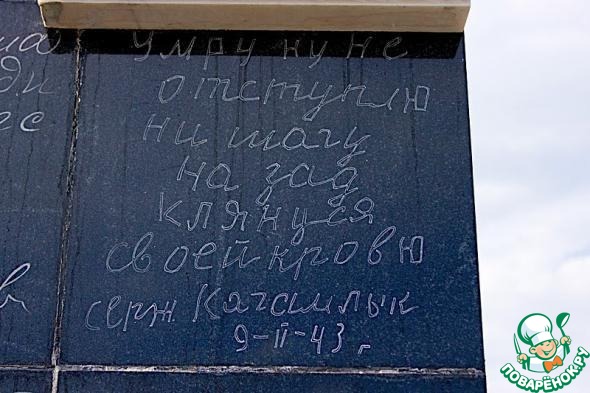 Умру ну не
отступлю
ни шагу
на зад
клянуся
своей кровю
серж Кагамлык
9-II-43 г
ПОВАРЁНОК.РУ